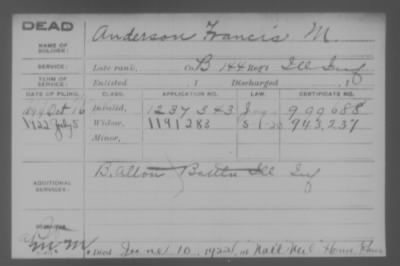 DEAD
Anderson Francis M.
NAME OF SOLDIER:
SERVICE: Late rank, Co. B 144 Regt Ill Inf
TERM OF SERVICE: Enlisted , 1 Discharged , 1
DATE OF FILING. CLASS. APPLICATION NO. LAW. CERTIFICATE NO.
Oct 16 Invalid, 1237343 999688
1922 July 5 Widow, 1191283 943237
Minor,
ADDITIONAL SERVICES: B. Alton Ill Inf
Died June 10, 1922, at Nat'l Home